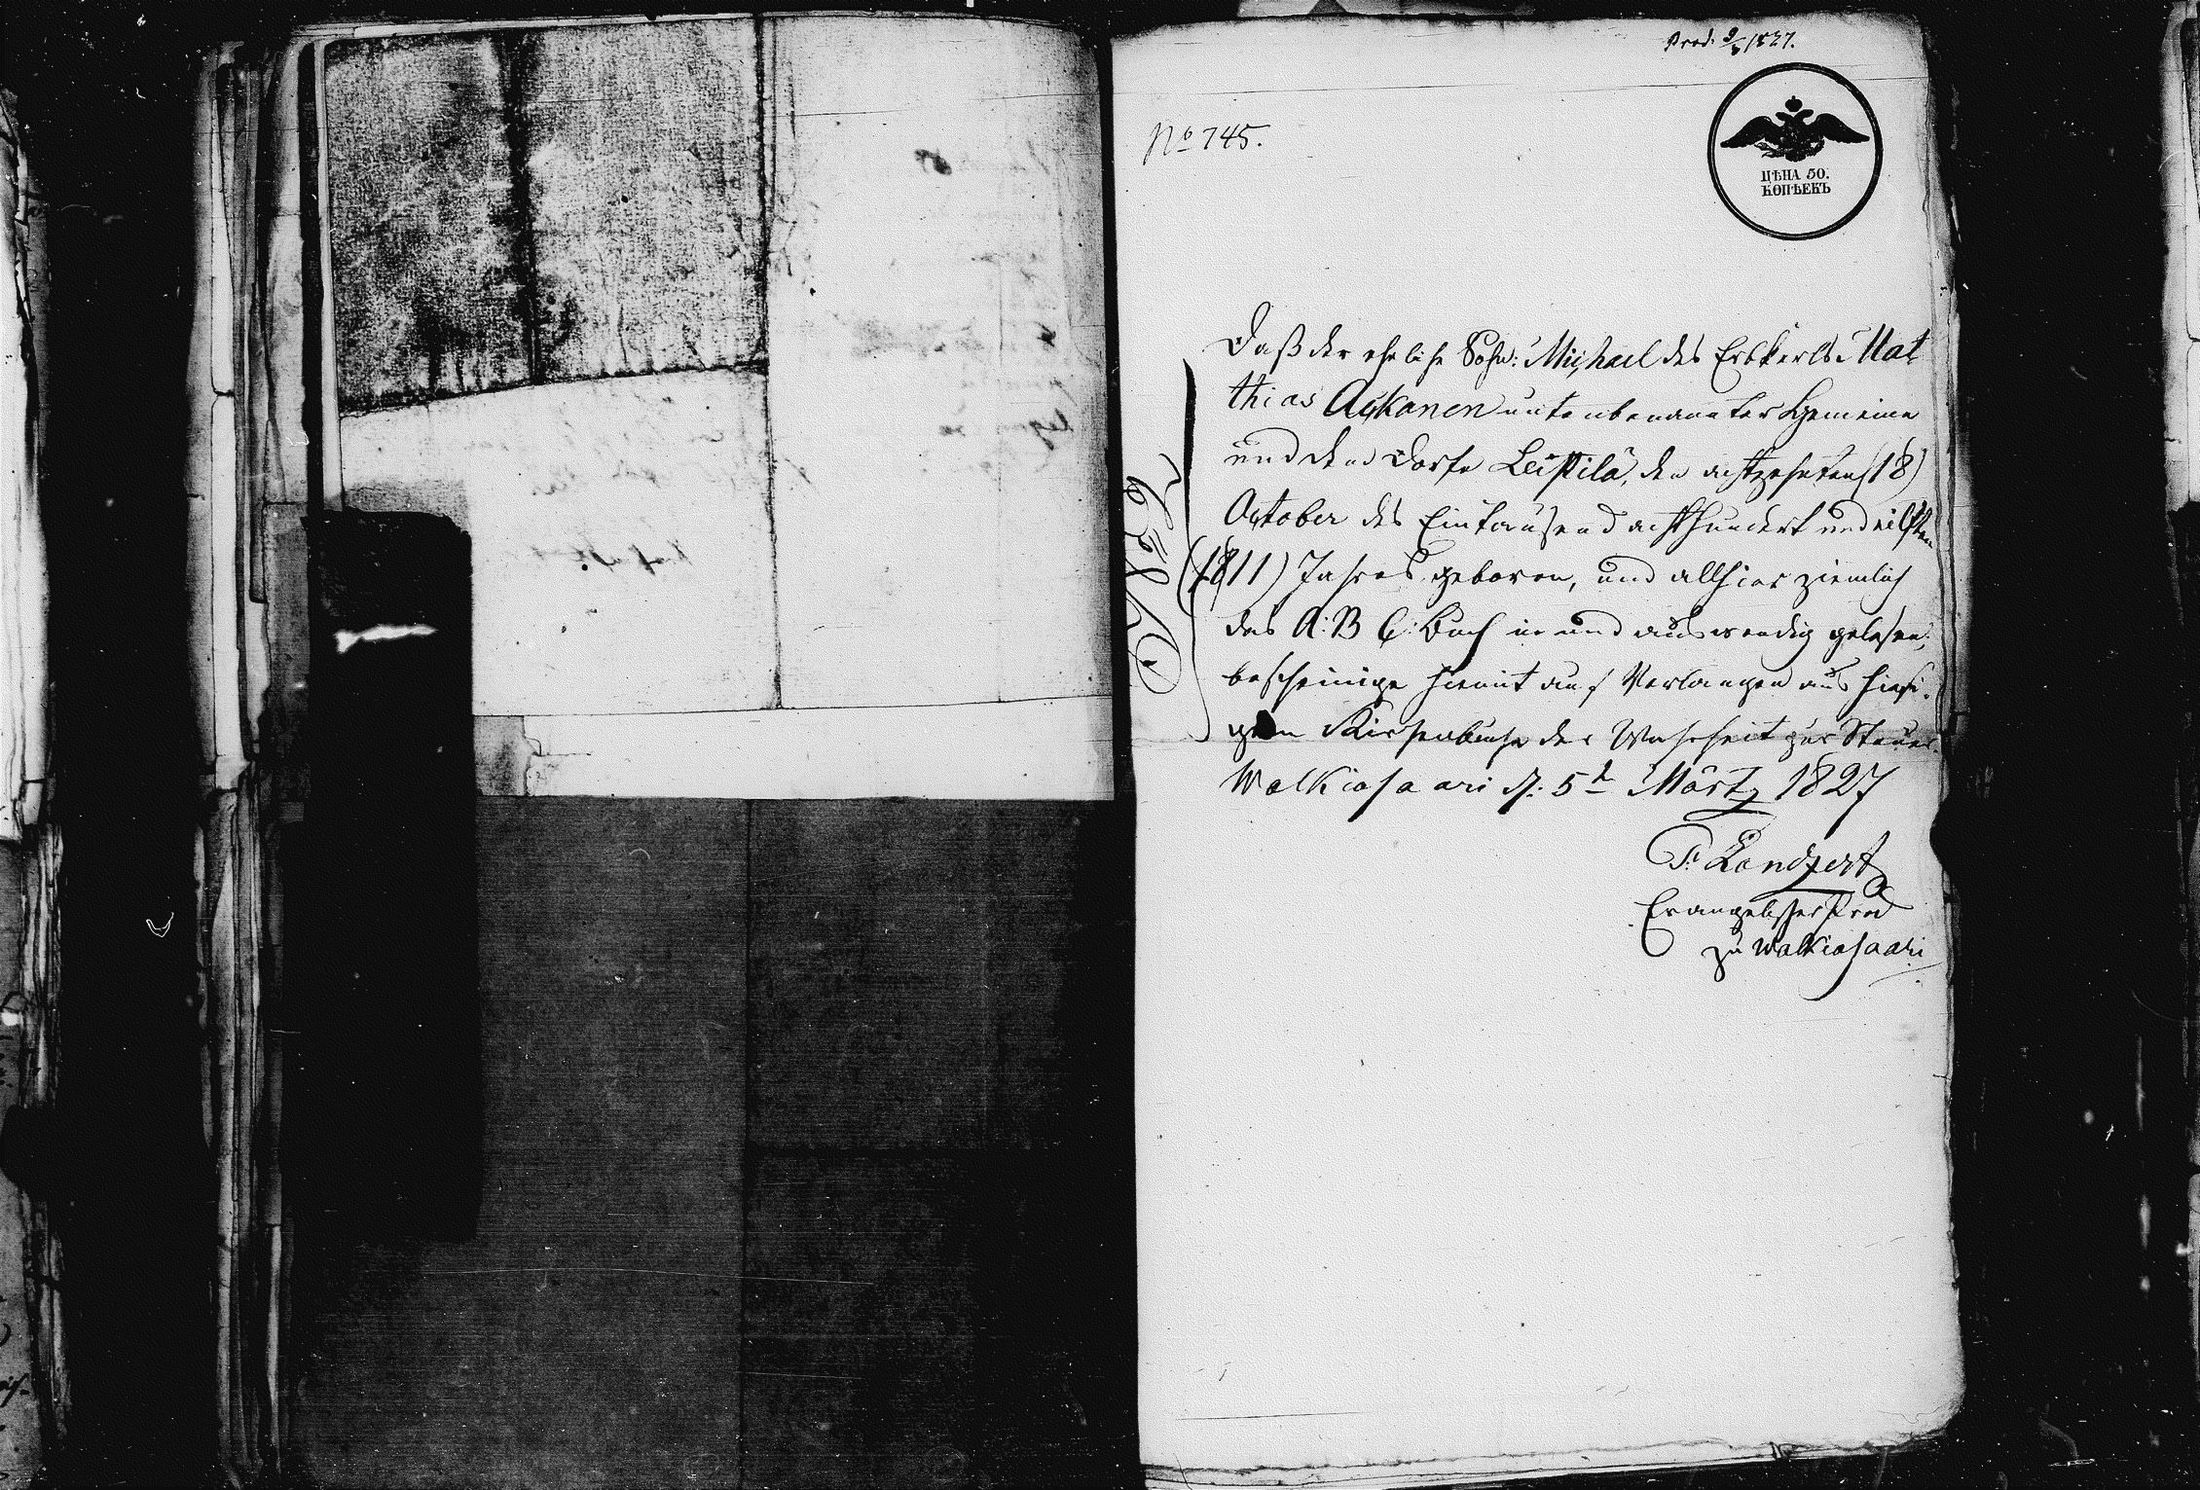 Prod: 9/3 1827.
No 745.
ЦѢНА 50.
КОПѢЕКЪ
Daß der eheliche Sohn: Michael des Erbkerls Mat
thias Ackanen unten benannter Gemeine
und dem Dorfe Leipilä, den achtzehnten (18)
October des Eintausend achthundert und eilften
(1811) Jahres geboren, und allhier ziemlich
das A: B C: Buch in und auswendig gelesen;
bescheinige hiemit auf Verlangen aus hiesi-
gem Kirchenbuche der Wahrheit zur Steuer.
Walkiasaari d: 5t März 1827
F: Landzert
Evangelischer Pred
zu Walkiasaari